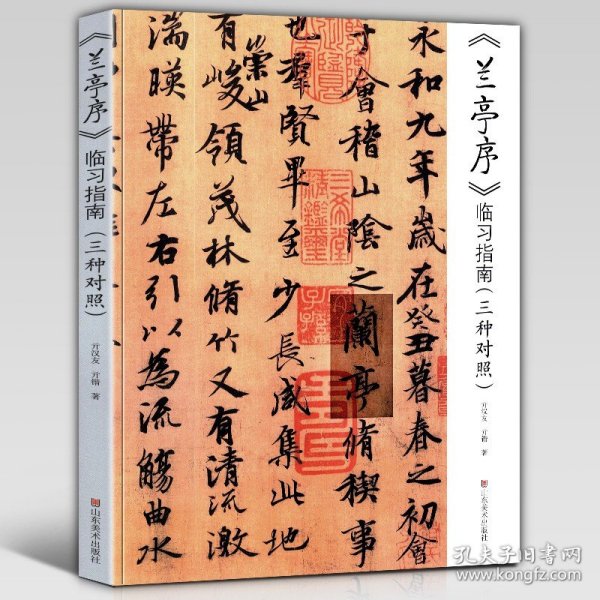 《兰亭序》临习指南（三种对照）
亓汉友 亓锴 著
山东美术出版社
永和九年歲在癸丑暮春之初會
于會稽山陰之蘭亭脩稧事
也羣賢畢至少長咸集此地
有崇山峻領茂林脩竹又有清流激
湍暎帶左右引以為流觴曲水
《兰亭序》临习指南（三种对照）
亓汉友 亓锴 著
山东美术出版社
孔夫子旧书网
www.kongfz.com